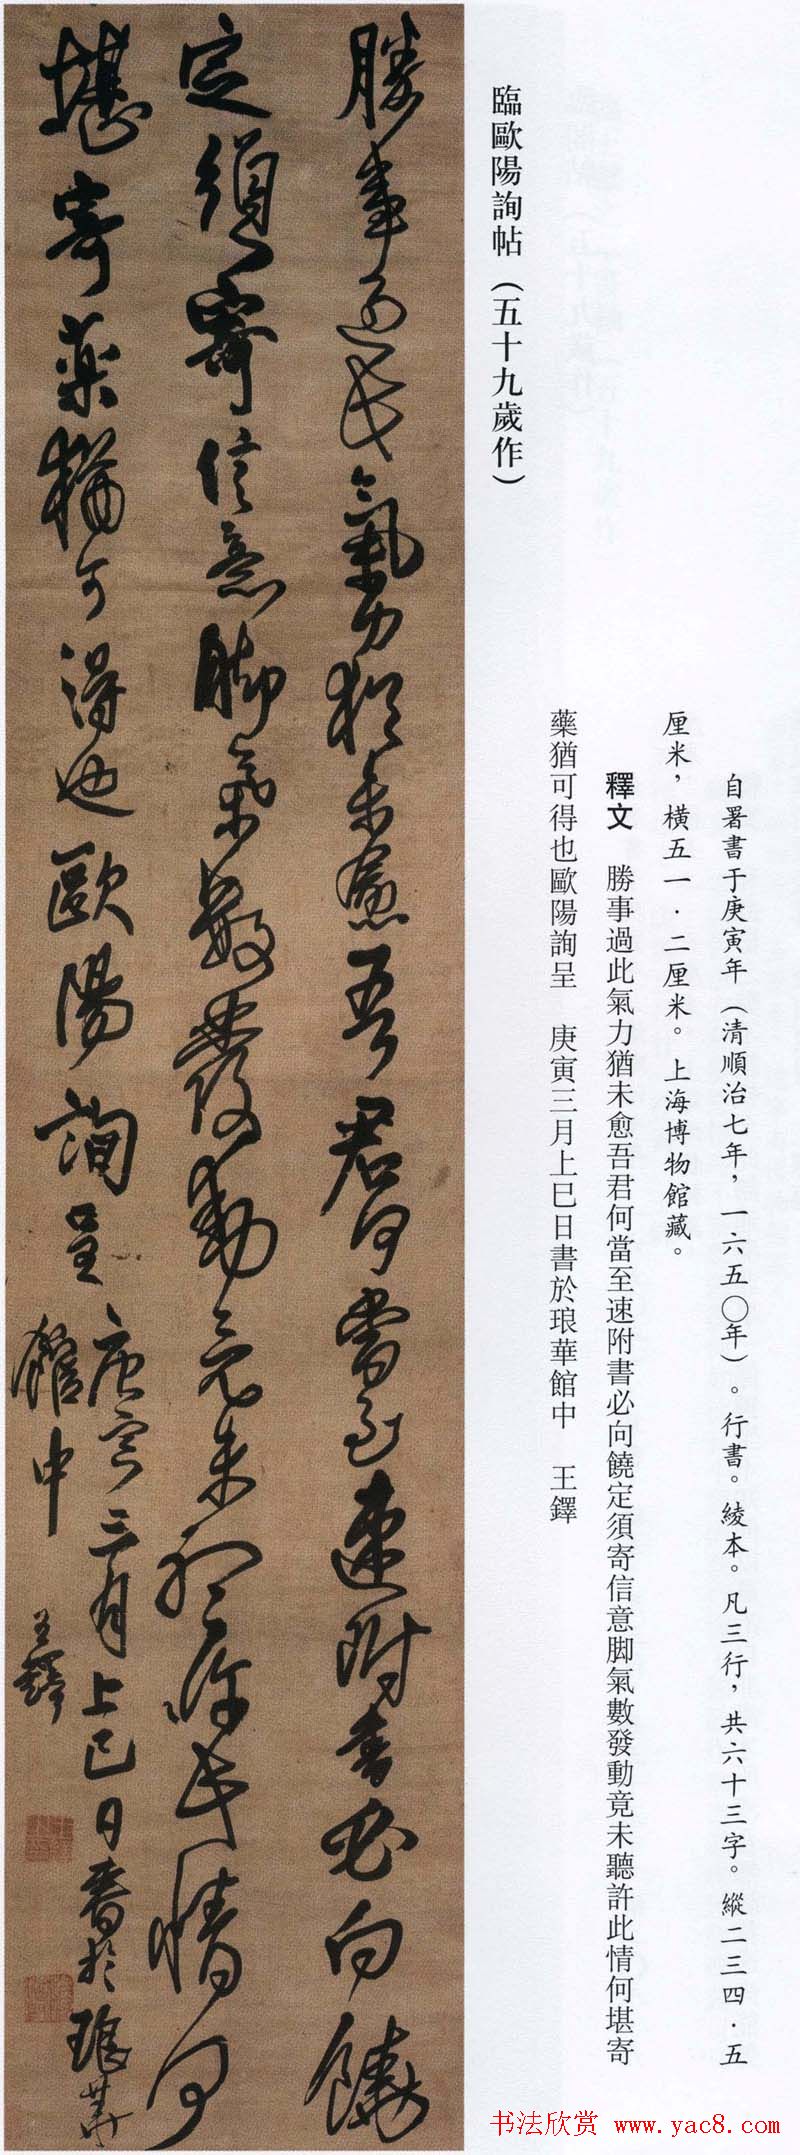 自署書于庚寅年（清順治七年，一六五〇年）。行書。綾本。凡三行，共六十三字。縱二三四·五
厘米，橫五一·二厘米。上海博物館藏。
釋文　勝事過此氣力猶未愈吾君何當至速附書必向饒定須寄信意脚氣數發動竟未聽許此情何堪寄
藥猶可得也歐陽詢呈　庚寅三月上巳日書於琅華館中　王鐸
臨歐陽詢帖（五十九歲作）
勝事過此氣力猶未愈吾君何當至速附書必向饒
定須寄信意脚氣數發動竟未聽許此情何
堪寄藥猶可得也歐陽詢呈
庚寅三月上巳日書於琅華
館中
王鐸
书法欣赏 www.yac8.com